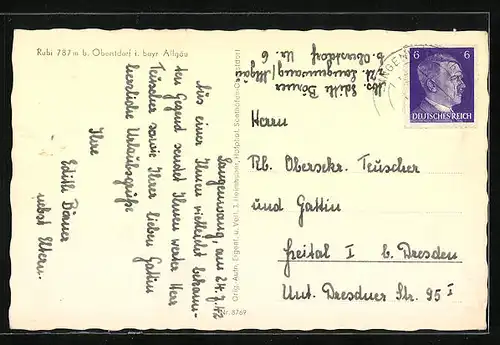 Rubi 787 m b. Oberstdorf i. bayr. Allgäu
Abs. Edith Börner
z. Zt. Langenwang/Allgäu
b. Oberstdorf
Nr. 6
6 6
DEUTSCHES REICH
Langenwang, am 24.7.42
Aus einer Ihnen vielleicht bekann-
ten Gegend sendet Ihnen werter Herr
Teuscher sowie Ihrer lieben Gattin
herzliche Urlaubsgrüße
Ihre
Edith Börner
nebst Eltern.
Orig. Aufn. Eigent. u. Verl. J. Heimhuber, Hofphot. Sonthofen-Oberstdorf
Nr. 8769
Herrn
Rb. Obersekr. Teuscher
und Gattin
Freital I b. Dresden
Unt. Dresdner Str. 95 I